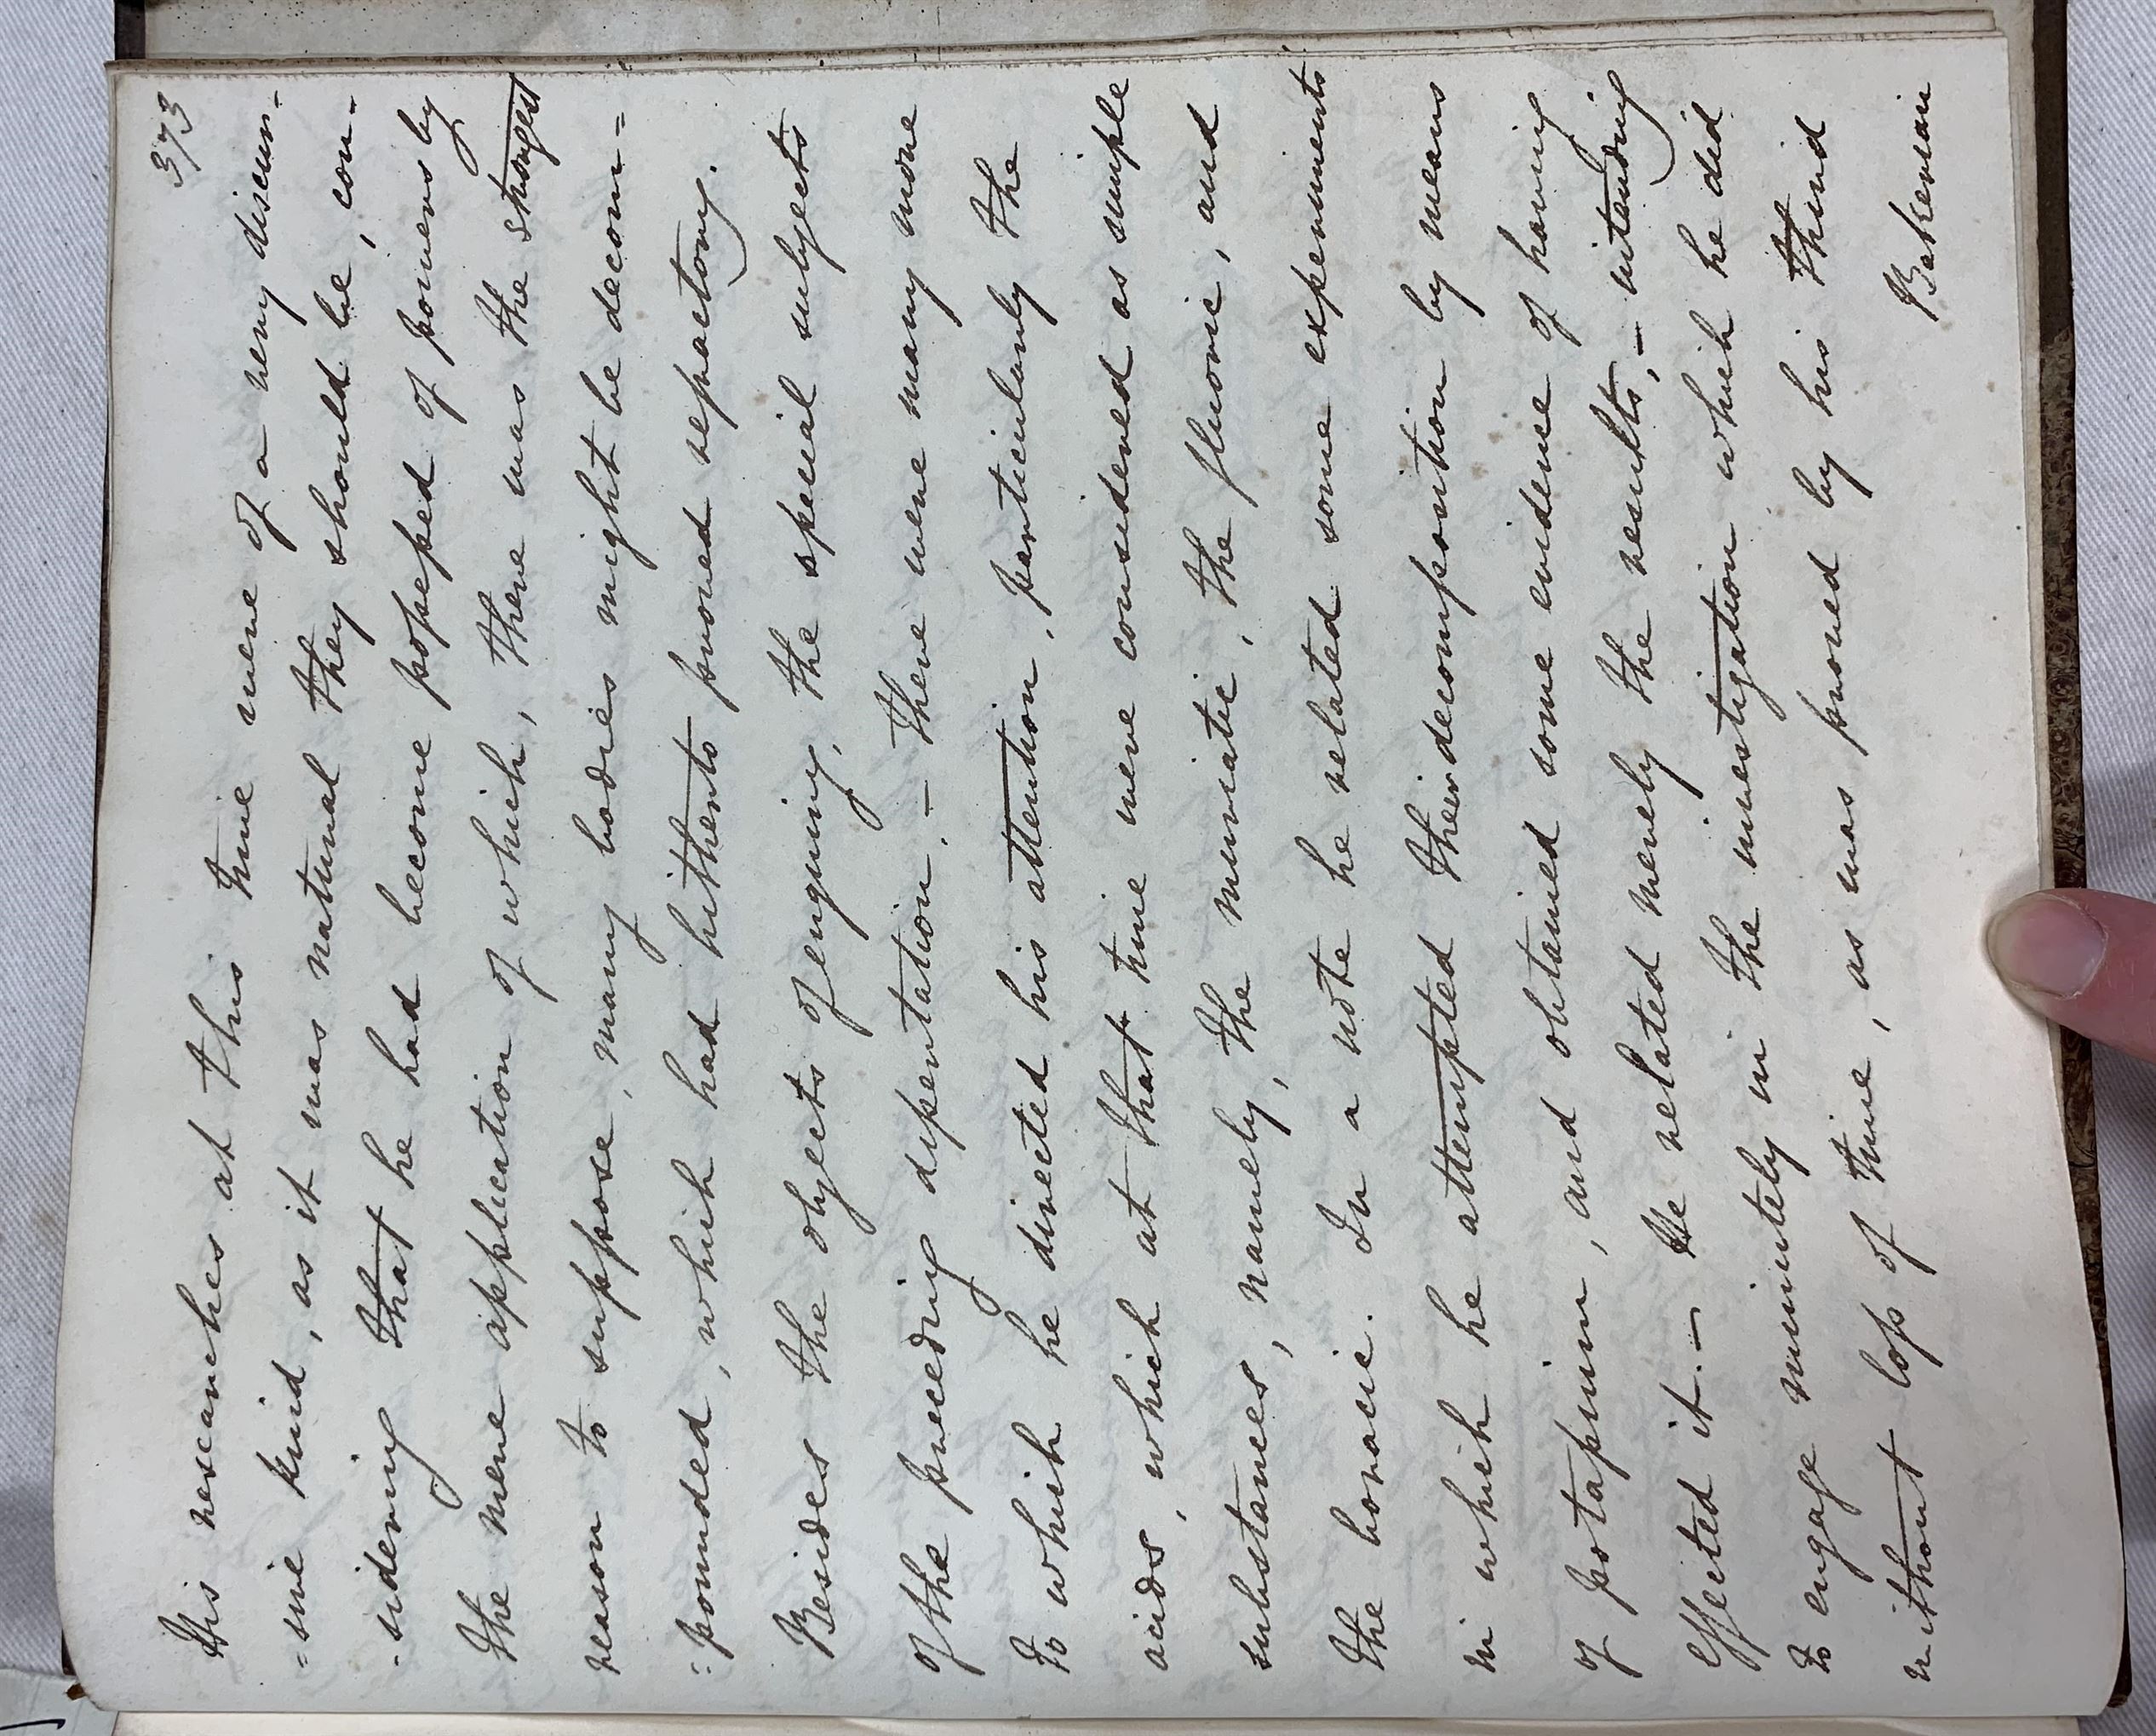 373
His researches at this time were of a very discur-
=sive kind, as it was natural they should be, con-
-sidering that he had become possessed of powers by
the mere application of which, there was the strongest
reason to suppose, many bodies might be decom=
=pounded, which had hitherto proved refractory.
Besides the objects of enquiry, the special subjects
of the preceding dissertation, – there were many more
to which he directed his attention, particularly the
acids, which at that time were considered as simple
substances, namely, the muriatic, the fluoric, and
the boracic. In a note he related some experiments
in which he attempted their decomposition by means
of potassium, and obtained some evidence of having
effected it. – He related merely the results, – intending
to engage minutely in the investigation which he did
without loss of time, as was proved by his third
Bakerian